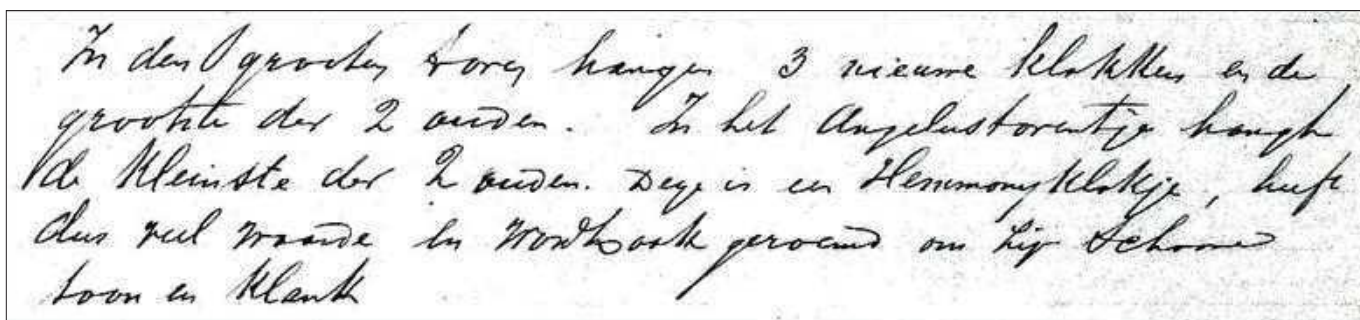 In den grooten toren hangen 3 nieuwe klokken en de
grootste der 2 ouden. In het Angelustorentje hangt
de kleinste der 2 ouden. Deze is een Hemmonyklokje, heeft
dus veel waarde en wordt ook geroemd om zijn schoone
toon en klank